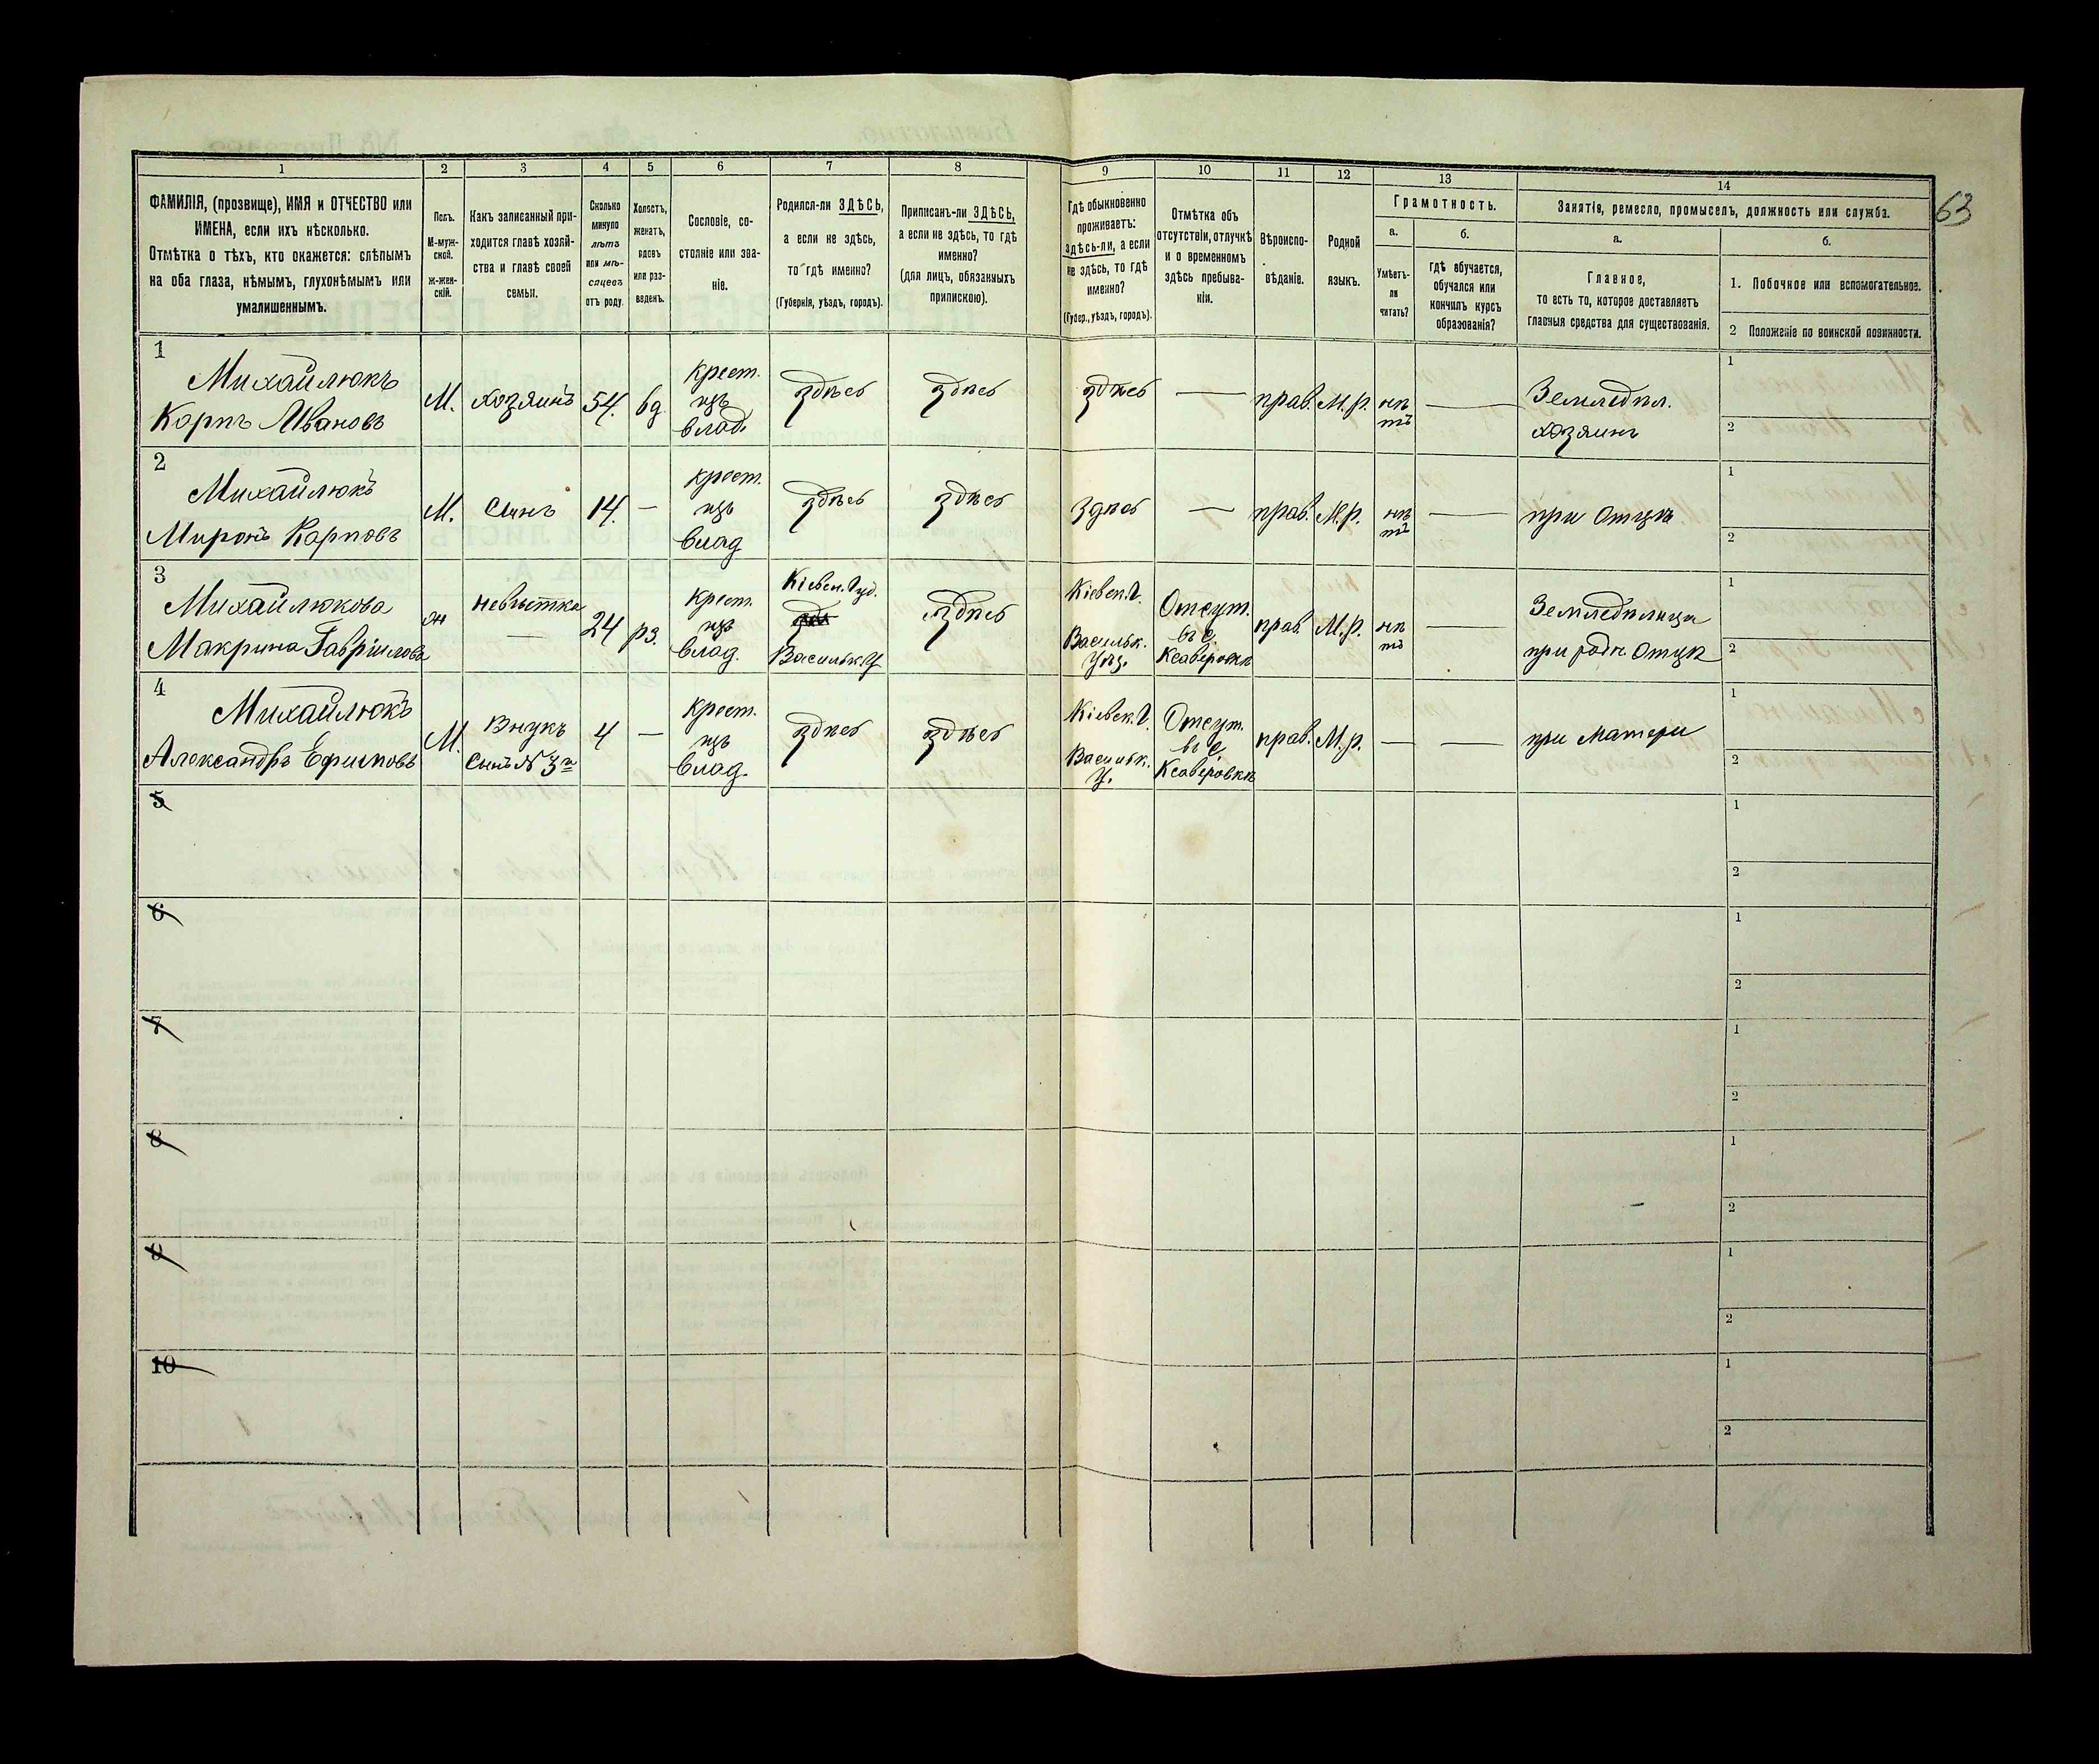 63
1 2 3 4 5 6 7 8 9 10 11 12 13 14
ФАМИЛІЯ, (прозвище), ИМЯ и ОТЧЕСТВО или
ИМЕНА, если ихъ нѣсколько.
Отмѣтка о тѣхъ, кто окажется: слѣпымъ
на оба глаза, нѣмымъ, глухонѣмымъ или
умалишеннымъ.
Полъ.
М-муж-
ской.
Ж-жен-
скій.
Какъ записанный при-
ходится главѣ хозяй-
ства и главѣ своей
семьи.
Сколько
минуло
лѣтъ
или мѣ-
сяцевъ
отъ роду.
Холостъ,
женатъ,
вдовъ
или раз-
веденъ.
Сословіе, со-
стояніе или зва-
ніе.
Родился-ли ЗДѢСЬ,
а если не здѣсь,
то гдѣ именно?
(Губернія, уѣздъ, городъ).
Приписанъ-ли ЗДѢСЬ,
а если не здѣсь, то гдѣ
именно?
(для лицъ, обязанныхъ
припискою).
Гдѣ обыкновенно
проживаетъ:
здѣсь-ли, а если
не здѣсь, то гдѣ
именно?
(Губер., уѣздъ, городъ).
Отмѣтка объ
отсутствіи, отлучкѣ
и о временномъ
здѣсь пребыва-
ніи.
Вѣроиспо-
вѣданіе.
Родной
языкъ.
Грамотность.
а.
Умѣетъ-
ли
читать?
б.
гдѣ обучается,
обучался или
кончилъ курсъ
образованія?
Занятія, ремесло, промыселъ, должность или служба.
а.
Главное,
то есть то, которое доставляетъ
главныя средства для существованія.
б.
1. Побочное или вспомогательное.
2 Положеніе по воинской повинности.
1
Михайлюкъ
Карпъ Ивановъ
М.
хозяинъ
54.
вд
крест.
изъ
влад.
здѣсь
здѣсь
здѣсь
—
прав.
М.р.
нѣ
тъ
—
Земледѣл.
хозяинъ
1
2
2
Михайлюкъ
Миронъ Карповъ
М.
Сынъ
14.
—
крест.
изъ
влад
здѣсь
здѣсь
Здѣсь
—
прав.
М.р.
нѣ
тъ
—
при отцѣ
1
2
3
Михайлюкова
Макрина Гавріилова
ж
невѣстка
—
24
рз.
крест.
изъ
влад.
Кіевск. Губ.
Васильк. У
здѣсь
Кіевск. Г.
Васильк.
Уѣз.
Отсут.
въ с.
Ксаверовкѣ
прав.
М.р.
нѣ
тъ
—
Земледѣлица
при родн отцѣ
1
2
4
Михайлюкъ
Александръ Ефимовъ
М.
Внукъ
Сынъ № 3го
4
—
крест.
изъ
влад.
здѣсь
здѣсь
Кіевск. Г.
Васильк.
У.
Отсут.
въ с
Ксаверовкѣ
прав.
М.р.
—
—
при матери
1
2
5
1
2
6
1
2
7
1
2
8
1
2
9
1
2
10
1
2